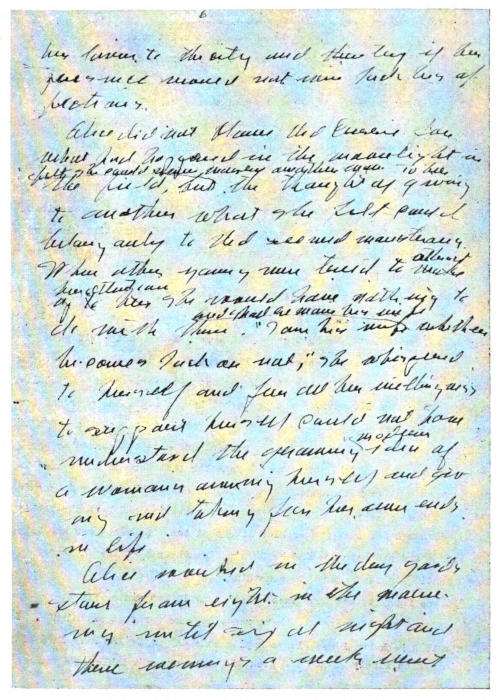 6
her lover to the city and then try if her
presence would not win back his af
fections.
Alice did not blame Ned Currie for
what had happened in the moonlight in
felt she could never marry another man. To her
the field, but the thought of giving
to another what she felt could
belong only to Ned seemed monstrous.
When other young men tried to attract
her attention
she would have nothing to
and shall remain his wife
do with them. "I am his wife whether
he comes back or not," she whispered
to herself and for all her willingness
to support herself could not have
modern
understand the growing idea of
a womans owning herself and giv
ing and taking for her own ends
in life
Alice worked in the dry goods
store from eight in the morn-
ing until six at night and
three evenings a week went